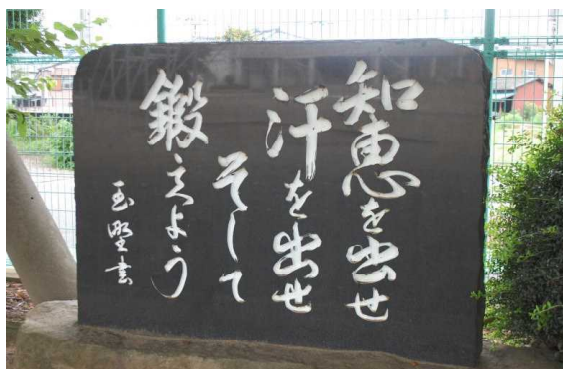 知恵を出せ
汗を出せ
そして
鍛えよう
玉堅書